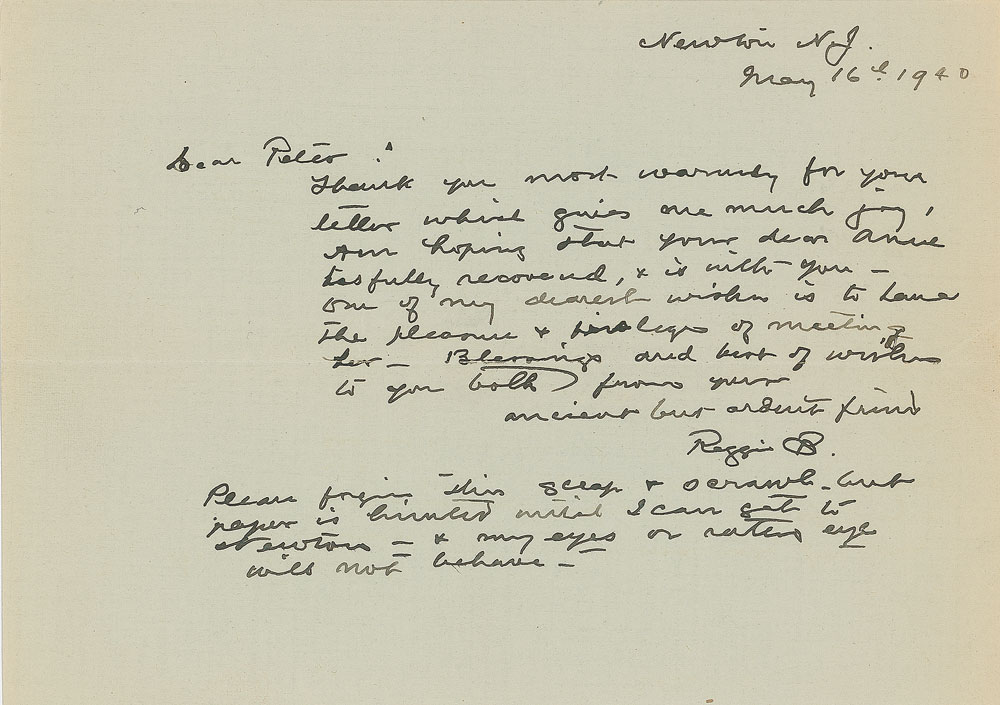 Newton N.J.
May 16th 1940
Dear Peter!
Thank you most warmly for your
letter which gives me much joy,
Am hoping that your dear Anne
is fully recovered, & is with you –
One of my dearest wishes is to have
the pleasure & privilege of meeting
her – Blessings and best of wishes
to you both from your
ancient but ardent friend
Reggie B.
Please forgive this scrap & scrawl – but
paper is limited until I can get to
Newton – & my eyes or rather eye
will not behave –